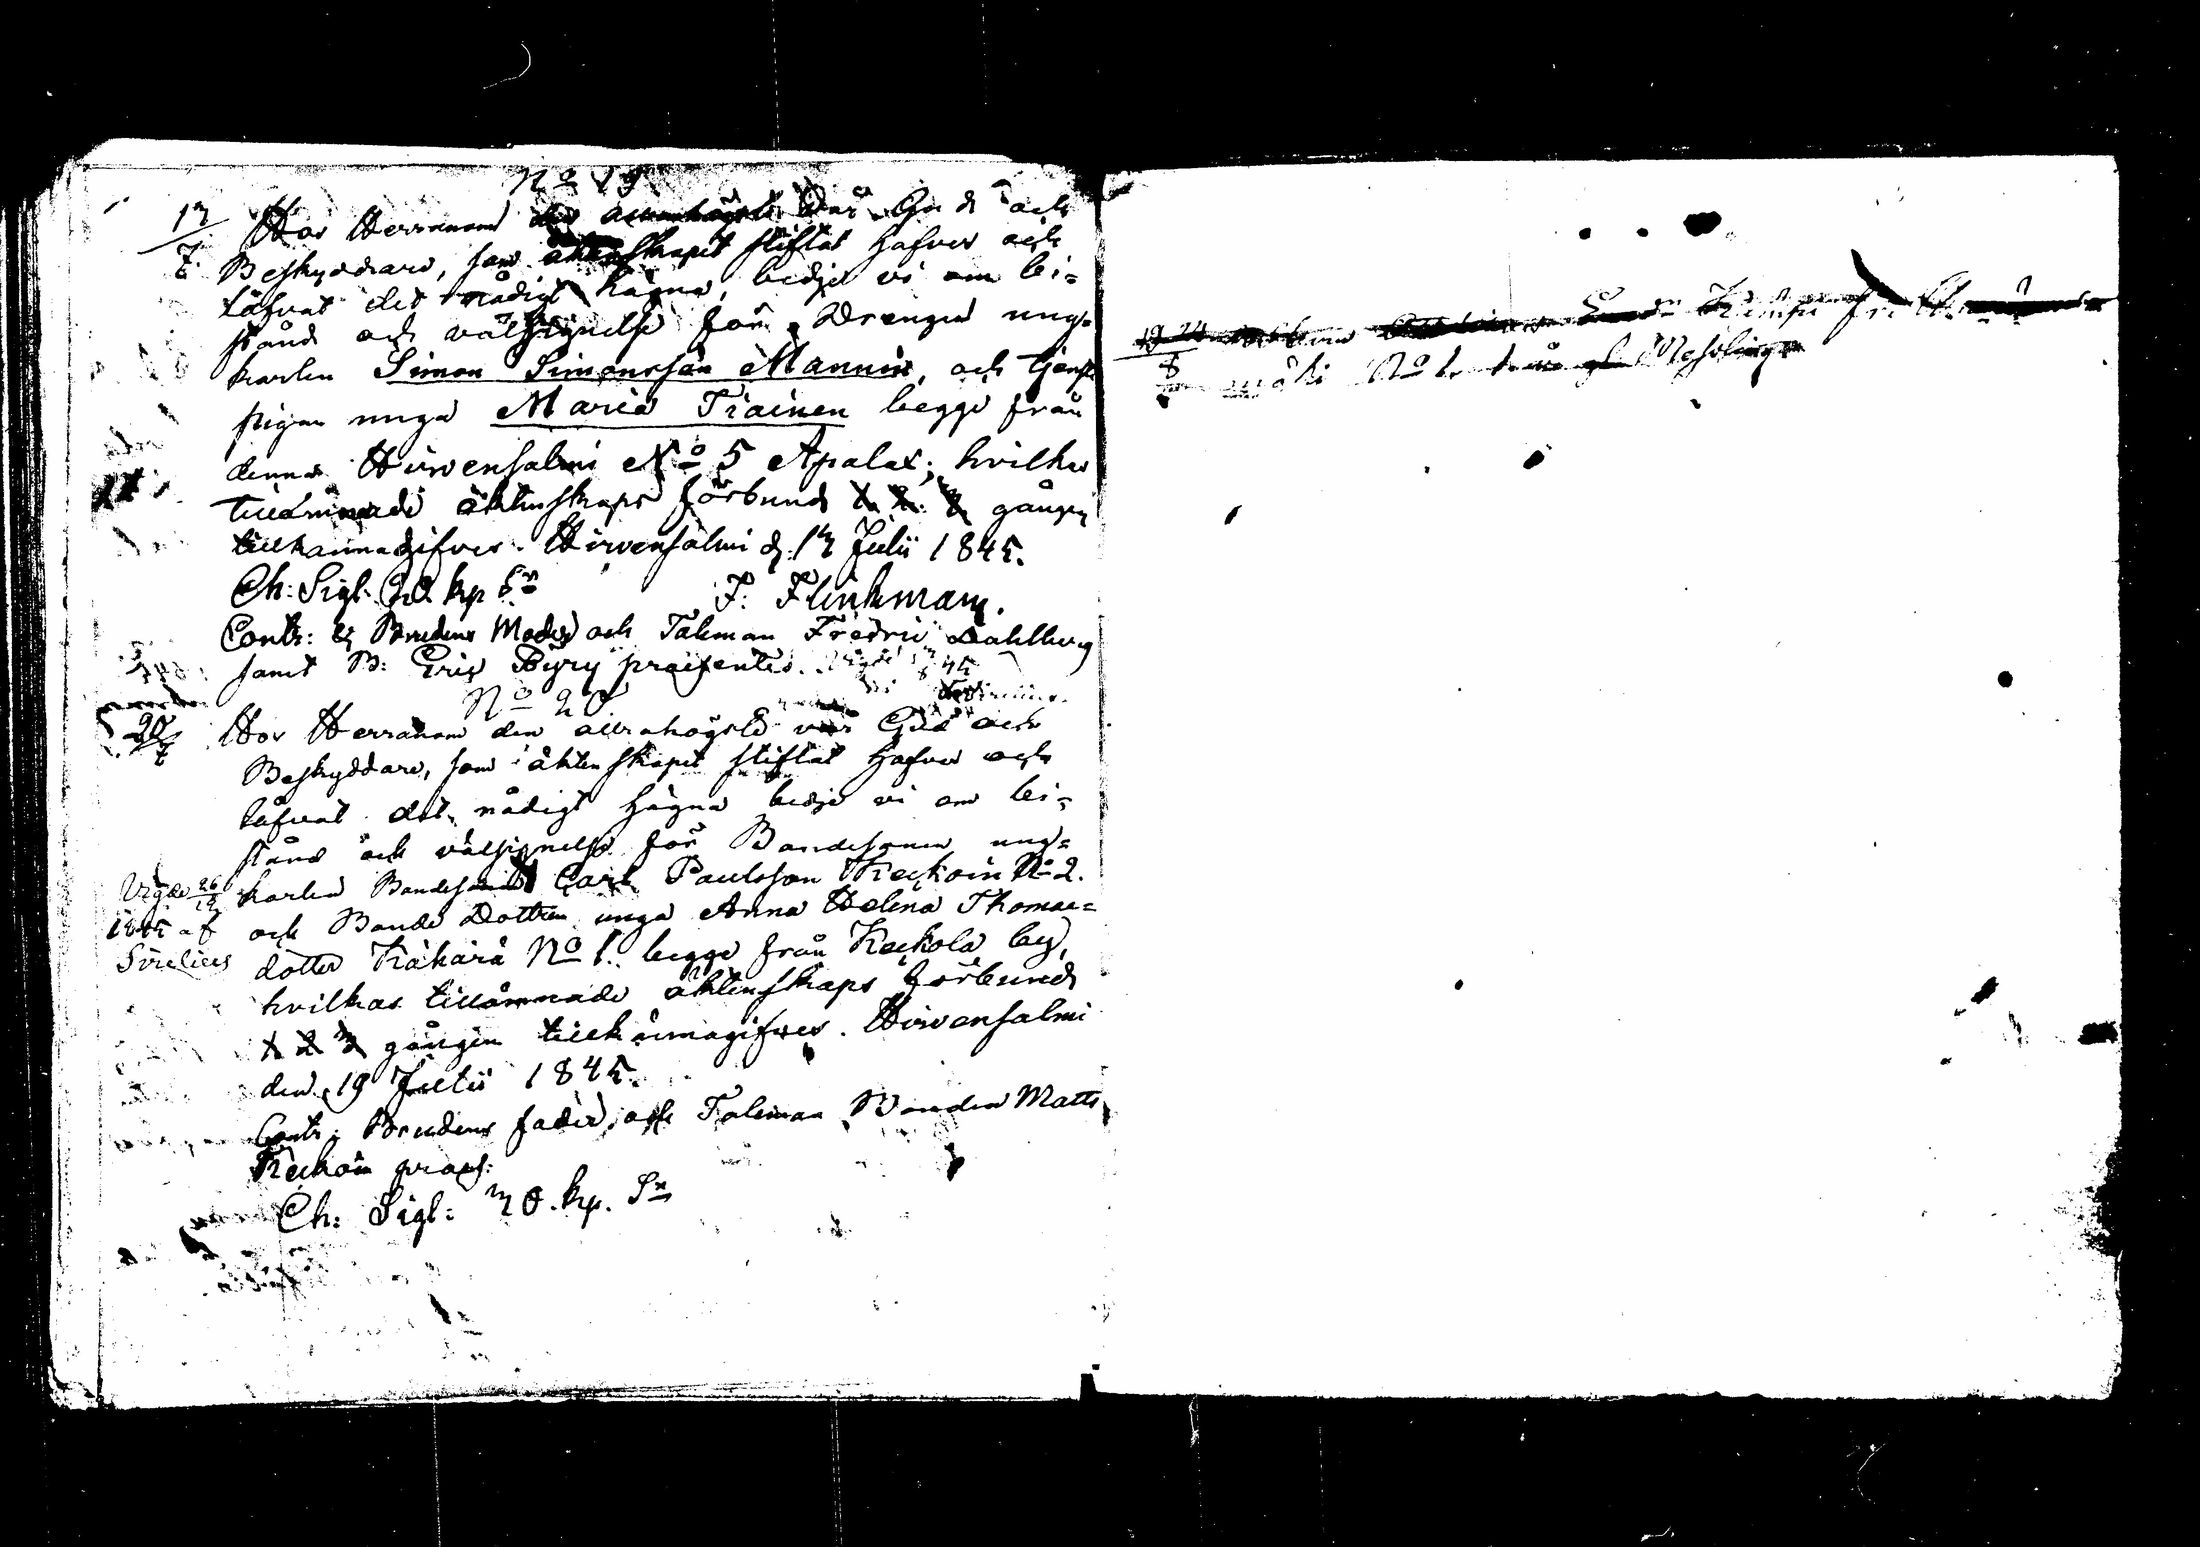 No 19
13/7 Hos Herranom den allrahögste vår Gud och
Beskyddare, som äktenskapet stiftat hafver och
låfvat det nådigt hägna, bedje vi om bi-
stånd och välsignelse för Drengen ung-
karlen Simon Simonsson Mannin, och tjenst
pigan unga Maria Tiainen begge från
denna Hirvensalmi No 5 Apalax; hvilkas
tillämnade äktenskaps förbund 1. 2. 3. gången
tillkännagifves. Hirvensalmi d. 13 Julii 1845.
Ch: Sigl: 30. kp Sr F: Flinkman.
Contr: Brudens Moder och Taleman Fredric Dahlberg
samt B: Eric Pyry præsentes. Vigde
No 20
20/7 Hos Herranom den allrahögste vår Gud och
Beskyddare, som äktenskapet stiftat hafver och
låfvat det nådigt hägna bedje vi om bi-
stånd och välsignelse för Bondesonen ung-
karlen Bondesonen Carl Paulsson Keckoin No 2.
och Bonde Dottren unga Anna Helena Thomae-
dotter Kähärä No 1. begge från Keckola by,
hvilkas tillämnade äktenskaps förbund
1 2 3 gången tillkännagifves. Hirvensalmi
den 19 Julii 1845.
Contr: Brudens fader och Taleman Bonden Matts
Keckoin præs:
Ch: Sigl: 30. kp. Sr
Vigde 26/12
1845 af
Sirelius
8
No 1.